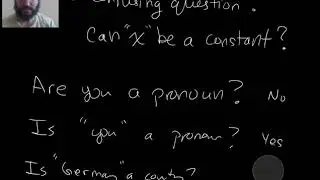 confusing question.
Can "x" be a constant?
Are you a pronoun? No
Is "you" a pronoun? Yes
Is "Germany" a country?